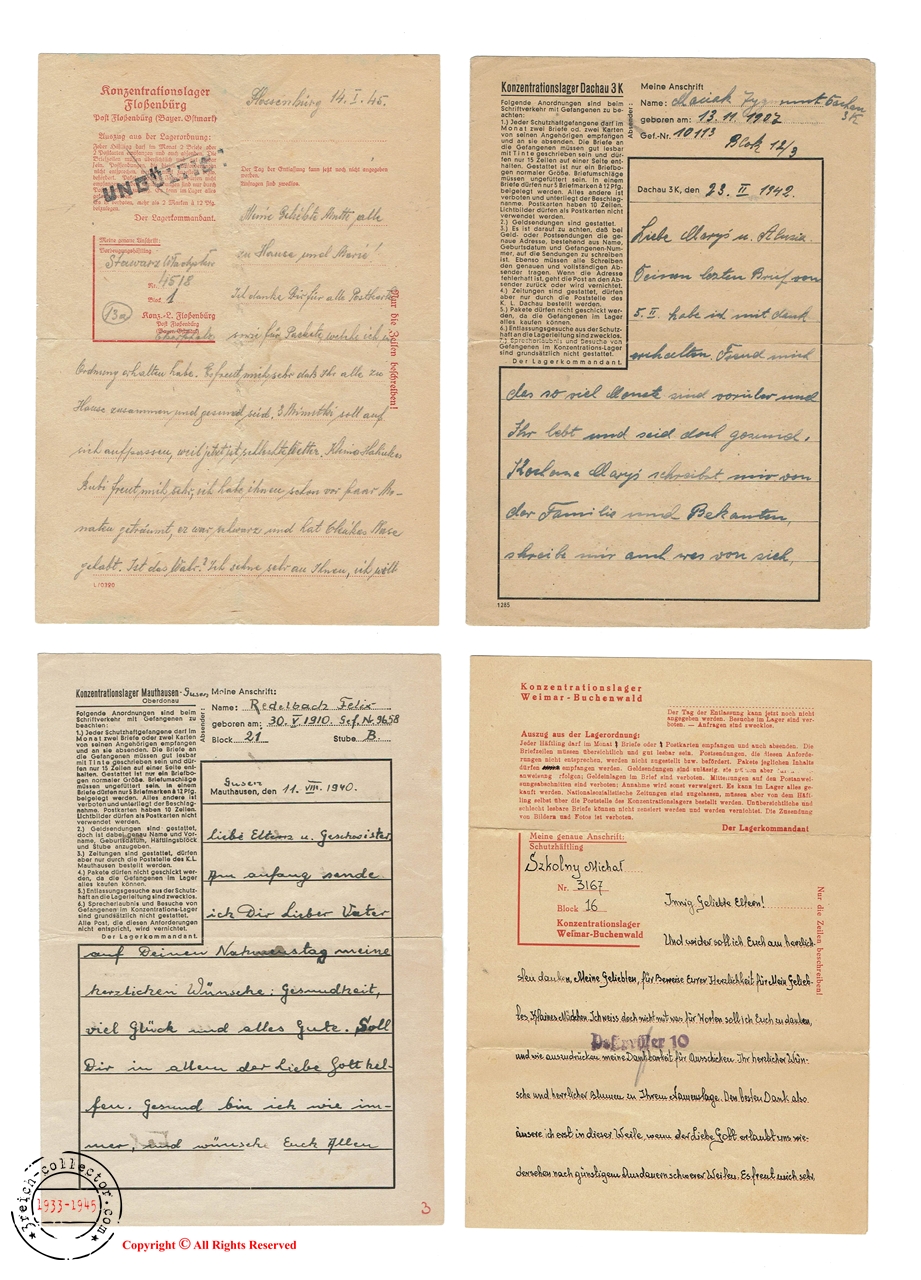 Konzentrationslager
Floßenbürg
Post Floßenbürg (Bayer. Ostmark)
Auszug aus der Lagerordnung:
UNGÜLTIG!
Der Lagerkommandant.
Flossenbürg 14.I.45.
Der Tag der Entlassung kann jetzt noch nicht angegeben
werden.
Anfragen sind zwecklos.
Meine genaue Anschrift:
Nr. 4518
Block 1
13a
Konz.-L. Floßenbürg
Post Floßenbürg
Meine Geliebte Mutti, alle
zu Hause und Marie!
Ich danke Dir für alle
für Pakete, welche ich in
Nur die Zeilen beschreiben!
Ordnung erhalten habe. Es freut mich sehr daß Ihr alle zu
Hause zusammen und gesund seid. soll auf
sich aufpassen, weil jetzt ist schlechte Wetter.
Bubi freut mich sehr, ich habe ihnen schon vor paar Mo-
naten geträumt, er war schwarz und hat Nase
gehabt. Ist das Wahr? Ich sehne sehr an Ihnen, ich will
L/0390
Konzentrationslager Dachau 3 K
Folgende Anordnungen sind beim
Schriftverkehr mit Gefangenen zu be-
achten:
1.) Jeder Schutzhaftgefangene darf im
Monat zwei Briefe od. zwei Karten
von seinen Angehörigen empfangen
und an sie absenden. Die Briefe an
die Gefangenen müssen gut lesbar
mit Tinte geschrieben sein und dür-
fen nur 15 Zeilen auf einer Seite ent-
halten. Gestattet ist nur ein Briefbo-
gen normaler Größe. Briefumschläge
müssen ungefüttert sein. In einem
Briefe dürfen nur 5 Briefmarken à 12 Pfg.
beigelegt werden. Alles andere ist
verboten und unterliegt der Beschlag-
nahme. Postkarten haben 10 Zeilen.
Lichtbilder dürfen als Postkarten nicht
verwendet werden.
2.) Geldsendungen sind gestattet.
3.) Es ist darauf zu achten, daß bei
Geld- oder Postsendungen die ge-
naue Adresse, bestehend aus Name,
Geburtsdatum und Gefangenen-Num-
mer, auf die Sendungen zu schreiben
ist. Ebenso müssen alle Schreiben
den genauen und vollständigen Ab-
sender tragen. Wenn die Adresse
fehlerhaft ist, geht die Post an den Ab-
sender zurück oder wird vernichtet.
4.) Zeitungen sind gestattet, dürfen
aber nur durch die Poststelle des
K. L. Dachau bestellt werden.
5.) Pakete dürfen nicht geschickt wer-
den, da die Gefangenen im Lager
alles kaufen können.
6.) Entlassungsgesuche aus der Schutz-
haft an die Lagerleitung sind zwecklos.
7.) Sprecherlaubnis und Besuche von
Gefangenen im Konzentrations-Lager
sind grundsätzlich nicht gestattet.
Der Lagerkommandant.
Absender:
Meine Anschrift
Name: Maciak Zygmunt Dachau
3K
geboren am: 13.11.1907
Gef.-Nr. 10113
Blok 12/3
Dachau 3 K, den 23. II 1942.
Liebe Maryś u.
besten Brief von
5. II. habe ich mit dank
erhalten. Freud mich
das so viel Monate sind vorüber und
Ihr lebt und seid doch gesund.
Kochana Maryś schreibt mir von
der Familie und Bekanten,
schreibe mir auch was von sich,
1285
Konzentrationslager Mauthausen-Gusen
Oberdonau
Folgende Anordnungen sind beim
Schriftverkehr mit Gefangenen zu
beachten:
1.) Jeder Schutzhaftgefangene darf im
Monat zwei Briefe oder zwei Karten
von seinen Angehörigen empfangen
und an sie absenden. Die Briefe an
die Gefangenen müssen gut lesbar
mit Tinte geschrieben sein und dür-
fen nur 15 Zeilen auf einer Seite ent-
halten. Gestattet ist nur ein Briefbo-
gen normaler Größe. Briefumschläge
müssen ungefüttert sein. In einem
Briefe dürfen nur 5 Briefmarken à 12 Pfg.
beigelegt werden. Alles andere ist
verboten und unterliegt der Beschlag-
nahme. Postkarten haben 10 Zeilen.
Lichtbilder dürfen als Postkarten nicht
verwendet werden.
2.) Geldsendungen sind gestattet,
doch ist dabei genau Name und Vor-
name, Geburtsdatum, Häftlingsblock
und Stube anzugeben.
3.) Zeitungen sind gestattet, dürfen
aber nur durch die Poststelle des K.L.
Mauthausen bestellt werden.
4.) Pakete dürfen nicht geschickt wer-
den, da die Gefangenen im Lager
alles kaufen können.
5.) Entlassungsgesuche aus der Schutz-
haft an die Lagerleitung sind zwecklos.
6.) Sprecherlaubnis und Besuche von
Gefangenen im Konzentrations-Lager
sind grundsätzlich nicht gestattet.
Alle Post, die diesen Anforderungen
nicht entspricht, wird vernichtet.
Der Lagerkommandant.
Absender:
Meine Anschrift:
Name: Redelbach Felix
geboren am: 30.V.1910. Gef. N. 9658
Block 21 Stube B.
Gusen
Mauthausen, den 11. VIII. 1940.
Liebe Eltern u. Geschwister
Am anfang sende
ich Dir Lieber Vater
auf Deinen Nahmenstag meine
herzlichen Wünsche: Gesundheit,
viel Glück und alles Gute. Soll
Dir in allem der Liebe Gott hel-
fen. Gesund bin ich wie im-
mer, und wünsche Euch Allen
3
Konzentrationslager
Weimar-Buchenwald
Der Tag der Entlassung kann jetzt noch nicht
angegeben werden. Besuche im Lager sind ver-
boten. — Anfragen sind zwecklos.
Auszug aus der Lagerordnung:
Jeder Häftling darf im Monat 1 Briefe oder 1 Postkarten empfangen und auch absenden. Die
Briefzeilen müssen übersichtlich und gut lesbar sein. Postsendungen, die diesen Anforde-
rungen nicht entsprechen, werden nicht zugestellt bzw. befördert. Pakete jeglichen Inhalts
dürfen empfangen werden. Geldsendungen sind zulässig, sie
anweisung erfolgen; Geldeinlagen im Brief sind verboten. Mitteilungen auf den Postanwei-
sungsabschnitten sind verboten; Annahme wird sonst verweigert. Es kann im Lager alles ge-
kauft werden. Nationalsozialistische Zeitungen sind zugelassen, müssen aber von dem Häft-
ling selbst über die Poststelle des Konzentrationslagers bestellt werden. Unübersichtliche und
schlecht lesbare Briefe können nicht zensiert werden und werden vernichtet. Die Zusendung
von Bildern und Fotos ist verboten.
Der Lagerkommandant
Meine genaue Anschrift:
Schutzhäftling
Szkolny Michał
Nr. 3167
Block 16
Konzentrationslager
Weimar-Buchenwald
Nur die Zeilen beschreiben!
Innig Geliebte Eltern!
Und wider soll ich Euch am herzlich-
sten danken, Meine Geliebten, für Beweise Eurer Herzlichkeit für Mein Gelieb-
tes Kleines Mädchen. Ich weiss doch nicht mit was für Worten soll ich Euch zu danken,
10
und wie auszudrücken meine Dankbarkeit für Ihr herzlicher Wün-
sche und herrlicher Blumen zu Ihrem Namenstage. Den besten Dank also
äusere ich erst in dieser Weile, wenn der Liebe Gott erlaubt uns wie-
dersehen nach günstigem Ausdauern schwerer Weilen. Es freut mich sehr
3reich-collector.com
1933-1945
Copyright © All Rights Reserved